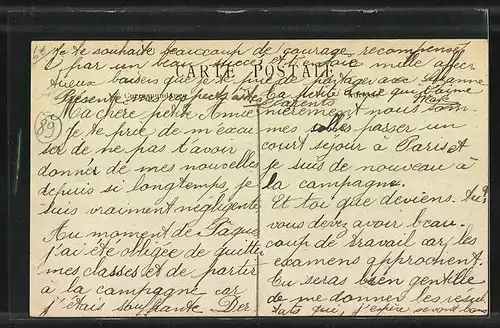 Je te souhaite beaucoup de courage recompensé
par un beau succès et t'envoie mille affec
tueux baisers que je te prie de partager avec Suzanne
CARTE POSTALE
Présente mes respects à tes
Parents
Ta petite amie qui t'aime
(89)
Ma chère petite Amie
Je te prie de m'excu
ser de ne pas t'avoir
donner de mes nouvelles
depuis si longtemps, je
suis vraiment négligente
Au moment de Pâques
j'ai été obligée de quitter
mes classes et de partir
à la campagne car
j'étais souffrante Der
nièrement nous som-
mes allés passer un
court sejour à Paris et
je suis de nouveau à
la campagne.
Et toi que deviens. tu?
vous devez avoir beau-
coup de travail car les
examens approchent.
Tu seras bien gentille
de me donner les resul
tats qui, j'espère seront bons